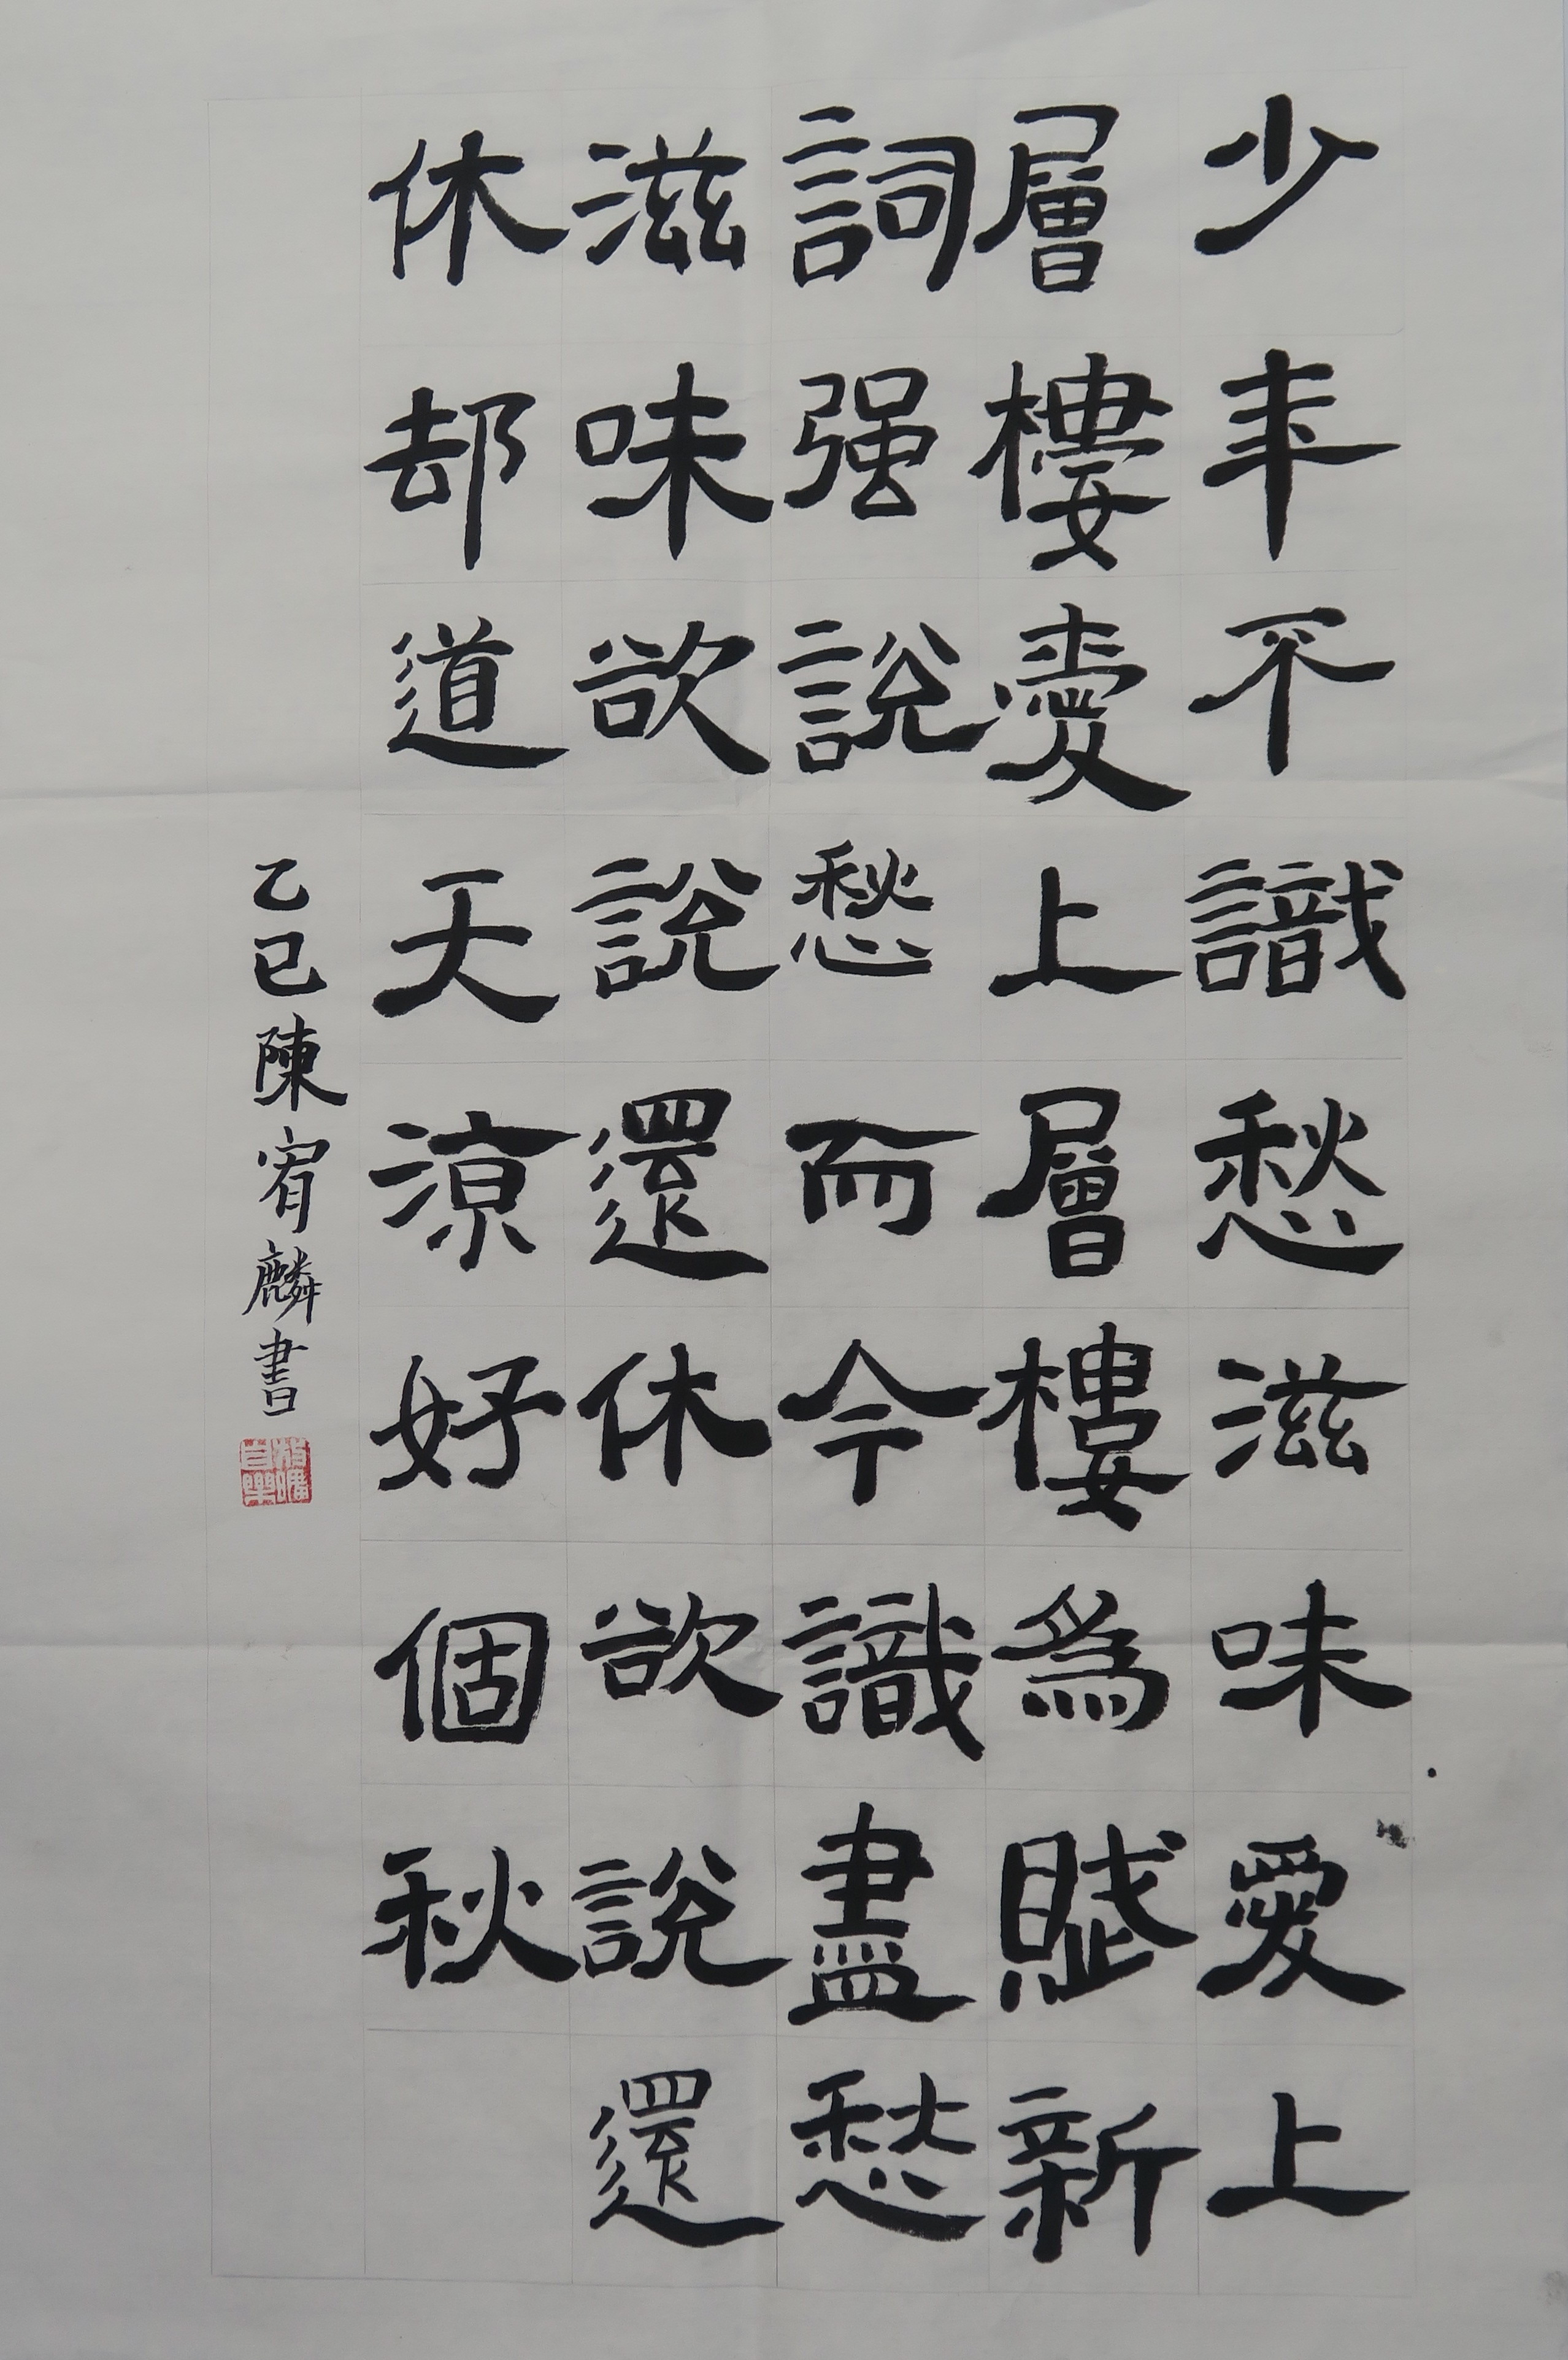 少年不識愁滋味愛上
層樓愛上層樓為賦新
詞强說愁而今識盡愁
滋味欲說還休欲說還
休却道天凉好個秋
乙巳陳宥麟書